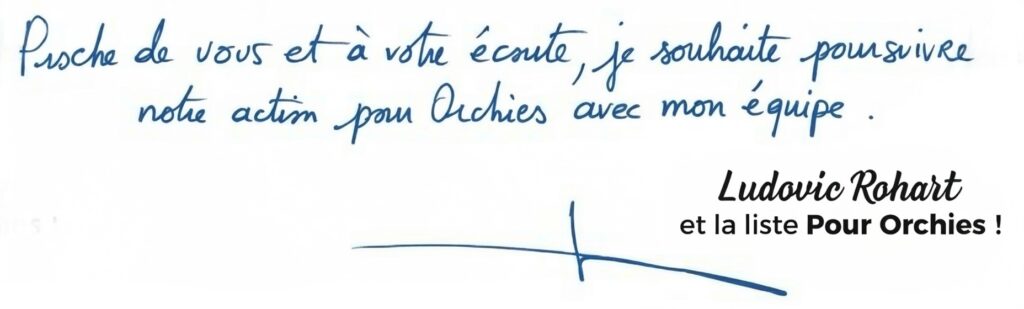 Proche de vous et à votre écoute, je souhaite poursuivre
notre action pour Orchies avec mon équipe.
Ludovic Rohart
et la liste Pour Orchies !